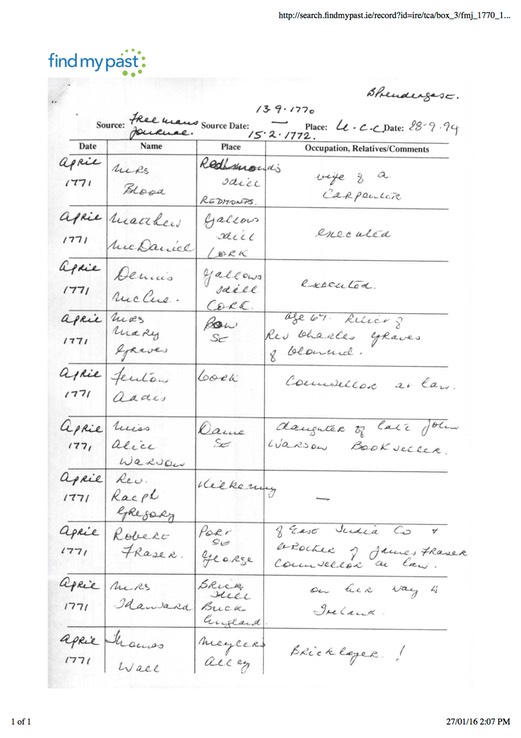 http://search.findmypast.ie/record?id=ire/tca/box_3/fmj_1770_1...
findmypast
BPrendergast.
13.9.1770
Source: Freemans Source Date: — Place: U.C.C Date: 28-9-94
Journal. 15.2.1772.
Date Name Place Occupation, Relatives/Comments
April Mrs Redmond's wife of a
1771 Blood Hill Carpenter
REDMONDS.
April Matthew Gallows executed
1771 McDaniel Hill
CORK
April Dennis Gallows executed.
1771 McCue. Hill
CORK.
April Mrs Bow age 67. Relict of
1771 Mary St Rev Charles Graves
Graves of Clonmel.
April Fenton Cork Counsellor at law.
1771 Addis
April Miss Dame daughter of late John
1771, Alice St Watson Bookseller.
Watson
April Rev. Kilkenny —
1771 Ralph
Gregory
April Robert Port of East India Co &
1771 Fraser. St brother of James Fraser
George Counsellor at law.
April Mrs Brick on her way to
1771 Hill Ireland.
Buck
England.
April Thomas Meylers Bricklayer. !
1771 Wall Alley
1 of 1 27/01/16 2:07 PM